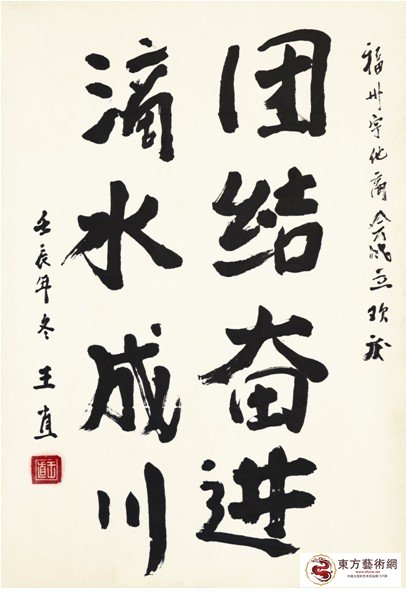 福州宁化商会成立
团结奋进
滴水成川
壬辰年冬 王直
王直
東方藝術網